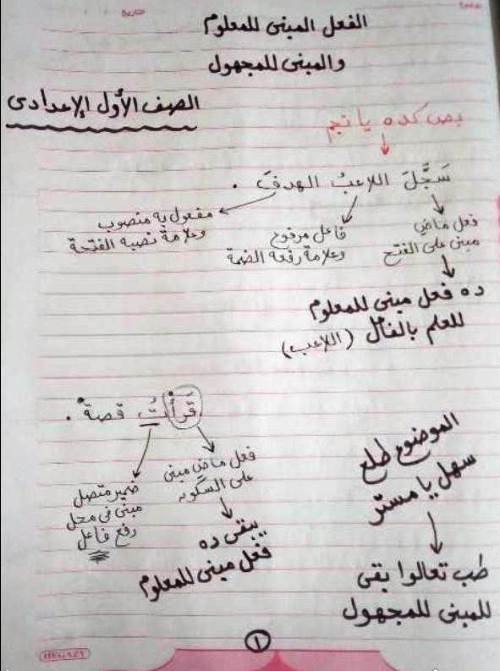 الفعل المبنى للمعلوم
والمبنى للمجهول
الصف الأول الإعدادى
بص كده يا نجم
سَجَّلَ اللاعبُ الهدفَ .
فعل ماضٍ
مبنى على الفتح
فاعل مرفوع
وعلامة رفعه الضمة
مفعول به منصوب
وعلامة نصبه الفتحة
ده فعل مبنى للمعلوم
للعلم بالفاعل (اللاعب)
قَرَأْتُ قصةً .
فعل ماض مبنى
على السكون
ضمير متصل
مبنى فى محل
رفع فاعل
يبقى ده
فعل مبنى للمعلوم
الموضوع طلع
سهل يا مستر
طب تعالوا بقى
للمبنى للمجهول
١